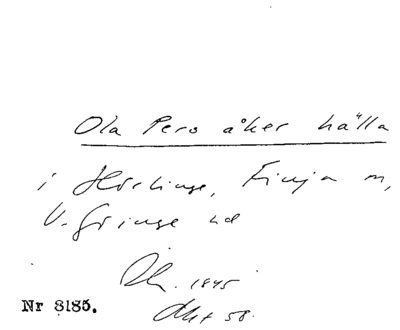 Ola Pers åker hälla
i Hörlinge, Finja m,
V. Göinge hd
1845
Akt 58.
Nr 8185.